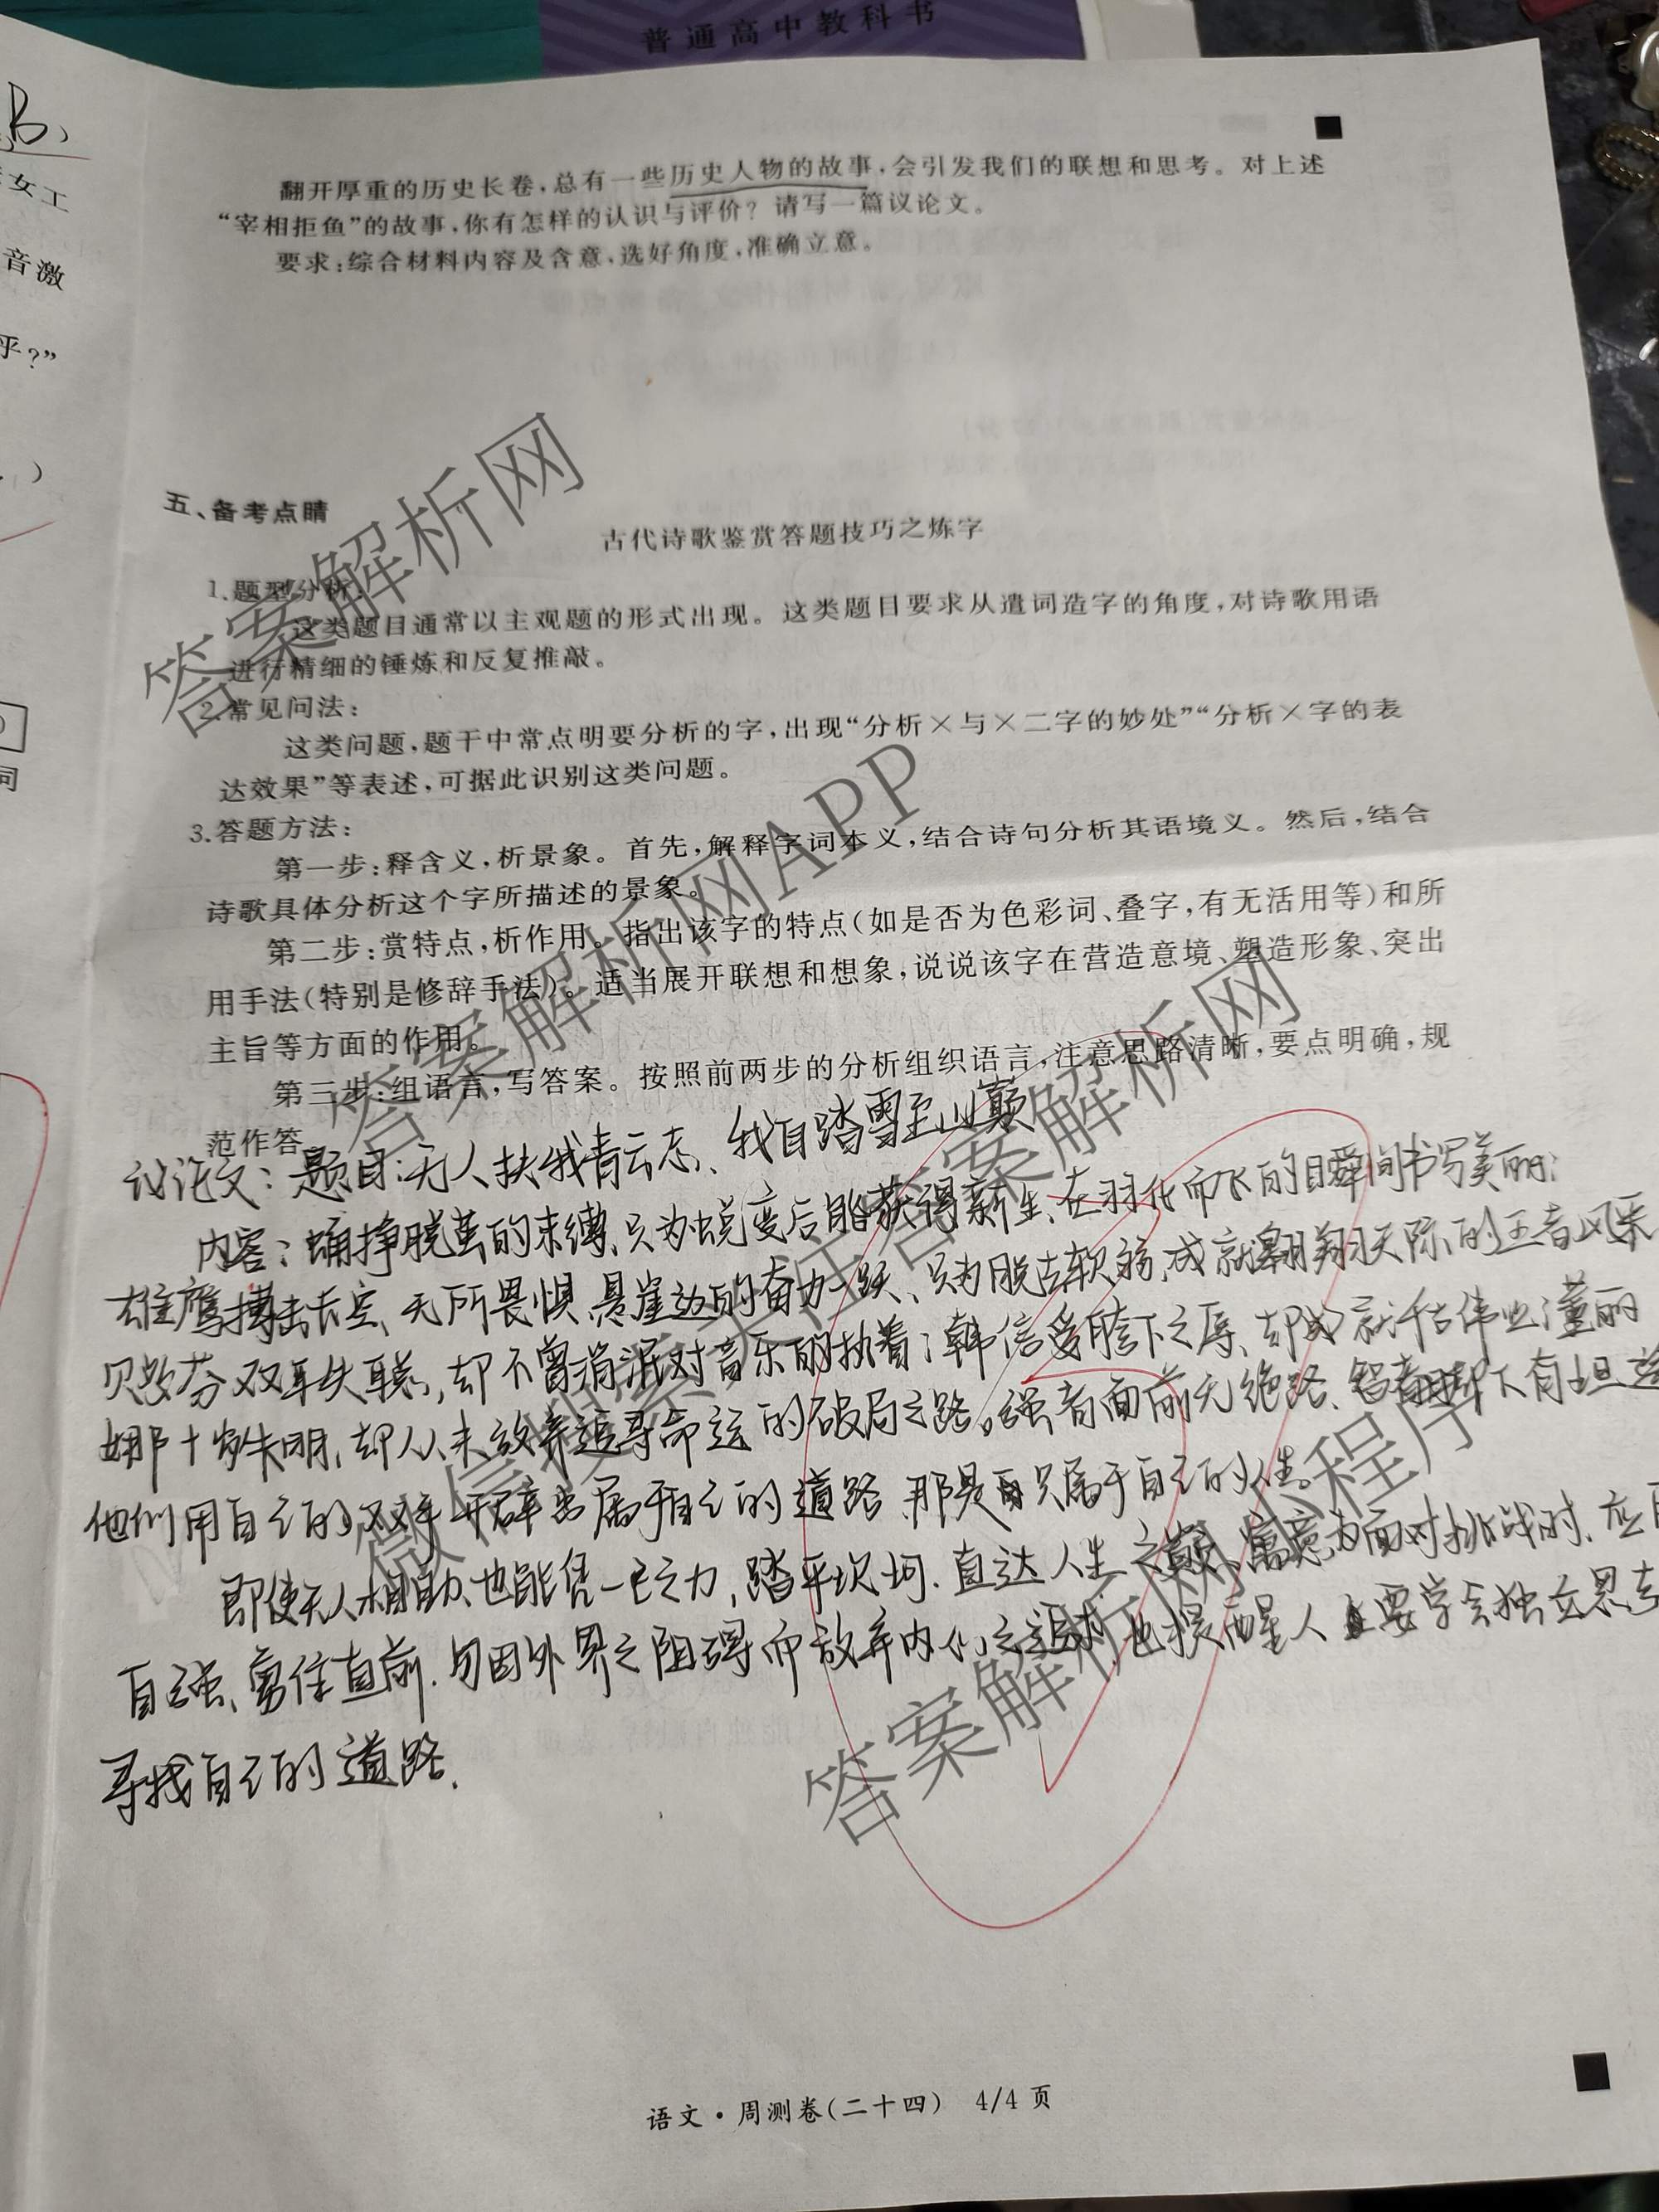 普通高中教科书
B
女工
音激
乎?”
)
词
翻开厚重的历史长卷,总有一些历史人物的故事,会引发我们的联想和思考。对上述
“宰相拒鱼”的故事,你有怎样的认识与评价?请写一篇议论文。
要求:综合材料内容及含意,选好角度,准确立意。
五、备考点睛
古代诗歌鉴赏答题技巧之炼字
1.题型分析:
这类题目通常以主观题的形式出现。这类题目要求从遣词造字的角度,对诗歌用语
进行精细的锤炼和反复推敲。
2.常见问法:
这类问题,题干中常点明要分析的字,出现“分析×与×二字的妙处”“分析×字的表
达效果”等表述,可据此识别这类问题。
3.答题方法:
第一步:释含义,析景象。首先,解释字词本义,结合诗句分析其语境义。然后,结合
诗歌具体分析这个字所描述的景象。
第二步:赏特点,析作用。指出该字的特点(如是否为色彩词、叠字,有无活用等)和所
用手法(特别是修辞手法)。适当展开联想和想象,说说该字在营造意境、塑造形象、突出
主旨等方面的作用。
第三步:组语言,写答案。按照前两步的分析组织语言,注意思路清晰,要点明确,规
范作答。
议论文:题目:无人扶我青云志、我自踏雪至山巅
内容:蛹挣脱茧的束缚、只为蜕变后能获得新生、在羽化而飞的瞬间书写美丽;
雄鹰搏击长空、无所畏惧、悬崖边的奋力一跃、只为脱去软弱,成就翱翔天际的王者风采
贝多芬双耳失聪,却不曾消泯对音乐的执着;韩信受胯下之辱、却成就千古伟业;董丽
娜十岁失明,却从未放弃追寻命运的破局之路。强者面前无绝路、智者脚下有坦途
他们用自己的双手开辟出属于自己的道路,那是只属于自己的人生。
即使无人相助、也能凭一己之力,踏平坎坷.直达人生之巅、寓意为面对挑战时.应
自强、勇往直前.勿因外界之阻碍而放弃内心之追求.也提醒人要学会独立思考
寻找自己的道路.
语文·周测卷(二十四) 4/4页
答案解析网
答案解析网APP
微信搜索关注答案解析网
答案解析网小程序